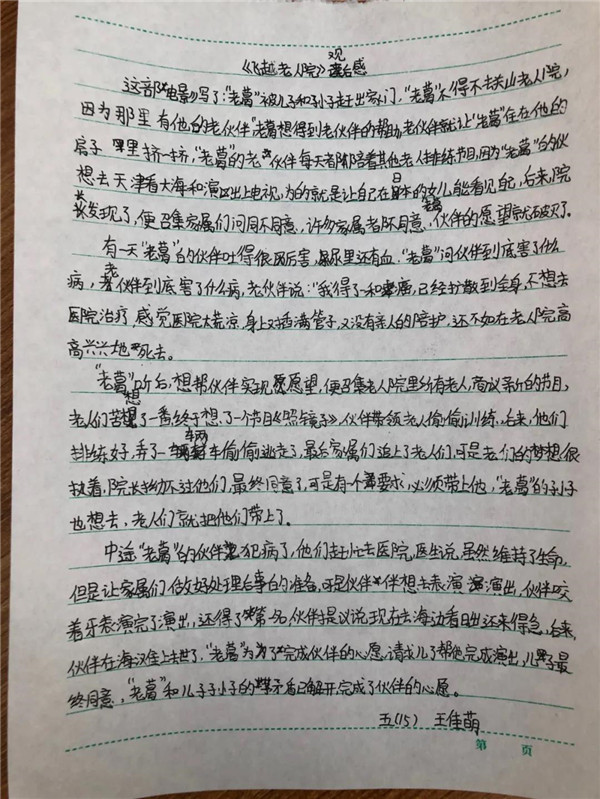 《飞越老人院》观后感
这部电影写了："老葛"被儿子和孙子赶出家门，"老葛"不得不去关山老人院，
因为那里有他的老伙伴，"老葛"想得到老伙伴的帮助，老伙伴就让"老葛"住在他的
房子里挤一挤，"老葛"的老伙伴每天都陪着其他老人排练节目，因为"老葛"的伙
想去天津看大海和演出上电视，为的就是让自己在日本的女儿能看见自己，后来，院
长发现了，便召集家属们问同不同意，许多家属都不同意，伙伴的愿望就破灭了。
有一天"老葛"的伙伴吐得很厉害，尿里还有血，"老葛"问伙伴到底害了什么
病，老伙伴到底害了什么病，老伙伴说："我得了一种癌，已经扩散到全身，不想去
医院治疗，感觉医院太荒凉，身上对插满管子，又没有亲人的陪护，还不如在老人院高
高兴兴地死去。
"老葛"听后，想帮伙伴实现愿望，便召集老人院里所有老人，商议新的节目，
老人们苦想了一番终于想了一个节目《照镜子》，伙伴带领老人偷偷训练，后来，他们
排练好，弄了一辆车偷偷逃走了，最后家属们追上了老人们，可是老们的梦想很
执着，院长拗不过他们，最终同意了，可是有一个要求，必须带上他，"老葛"的孙子
也想去，老人们就把他们带上了。
中途"老葛"的伙伴犯病了，他们赶忙去医院，医生说，虽然维持了生命，
但是让家属们做好处理后事的准备，可是伙伴想去表演演出，伙伴咬
着牙表演完了演出，还得了第一名，伙伴提议说，现在去海边看日出还来得急，后来，
伙伴在海边去世了，"老葛"为了完成伙伴的心愿，请求儿子帮他完成演出，儿子最
终同意，"老葛"和儿子孙子的矛盾已解开，完成了伙伴的心愿。
五（15） 王佳萌
第 页